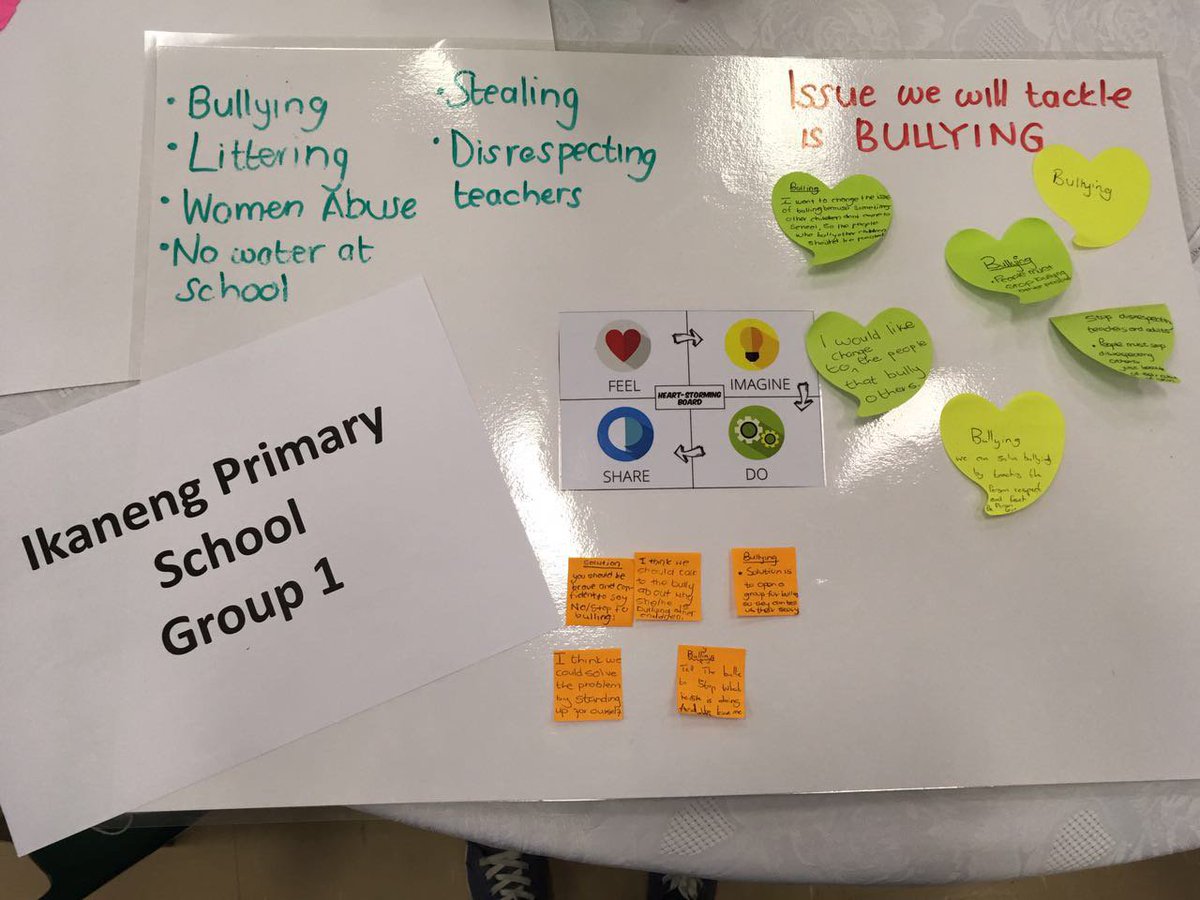 • Bullying
• Littering
• Women Abuse
• No water at
school
• Stealing
• Disrespecting
teachers
Issue we will tackle
is BULLYING
Bulling
I want to change the issue
of bulling because sometimes
other children dont come to
school, so the people
who bully other children
should be
Bullying
Bullying
• People must
stop bullying
other
I would like
change
to, the people
that bully
others.
Stop disrespecting
teachers and adults
• People must stop
disrespecting
others
just because
of
Bullying
we can solve bullying
by the
Person respect
and
the Person
FEEL
IMAGINE
HEART-STORMING
BOARD
SHARE
DO
Ikaneng Primary
School
Group 1
Solution
you should be
brave and con
fident to say
No/Stop to
bulling!
I think we
should
to the bully
about why
she/he is
bullying other
children.
Bullying
• Solution is
to open a
group for bullies
so they can tell
us their
I think we
could solve
the problem
by standing
up for ourself
Bullying
Tell The
to Stop what
he/she is doing
And